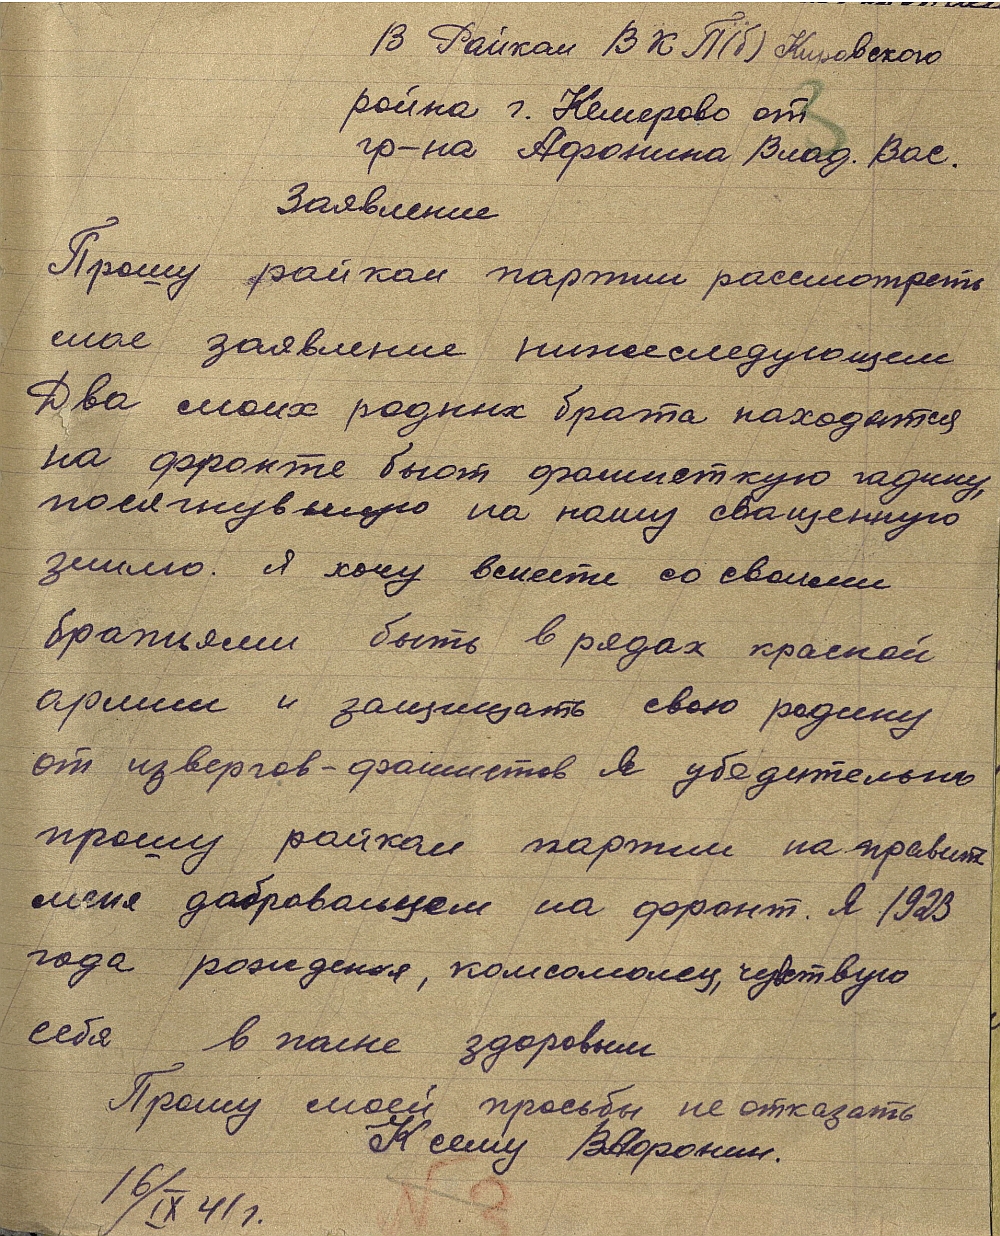 В Райком ВКП(б) Кировского
ройна г. Кемерово от
гр-на Афонина Влад. Вас.
Заявление
Прошу райком партии рассмотреть
мое заявление нижеследующем
Два моих родных брата находятся
на фронте бьют фашисткую гадину,
посягнувшую на нашу сващенную
землю. Я хочу вместе со своими
братьями быть в рядах красной
армии и защищать свою родину
от извергов-фашистов Я убедительно
прошу райком партии направить
меня добровольцем на фронт. Я 1923
года рождения, комсомолец, чувствую
себя в полне здоровым
Прошу моей просьбы не отказать
К сему ВАфонин.
16/IX 41 г.